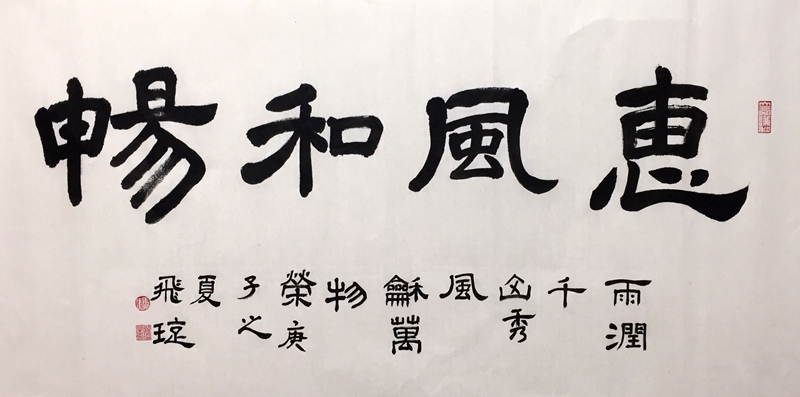 恵風和暢
雨潤
千
山秀
風
龢萬
物
榮庚
子之
夏
飛琔